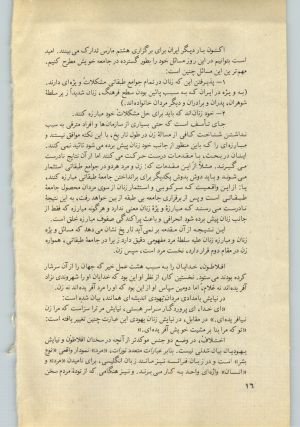 اکنون بار دیگر ایران برای برگزاری هشتم مارس تدارک می بیند. امید
است بتوانیم در این روز مسائل خود را بطور گسترده در جامعه خویش مطرح کنیم.
مهم ترین این مسائل چنین است:
۱– پذیرفتن این که زنان در تمام جوامع طبقاتی مشکلات ویژه‌ای دارند.
(به ویژه در ایران که به سبب پائین بودن سطح فرهنگ، زنان شدیداً زیر سلطه
شوهران، پدران و برادران و دیگر مردان خانواده‌اند.)
۲– خود زنان‌اند که باید برای حل مشکلات خود مبارزه کنند.
جای تأسف است که حتی بسیاری از سازمان‌ها و افراد مترقی به سبب
نداشتن شناخت کافی از مسأله زن در طول تاریخ، با این نکته موافق نیستند و
مبارزه‌ای را که باین منظور از جانب خود زنان پیش برده می شود تائید نمی کنند.
اینان در بحث، با مقدمات درست حرکت می کنند اما از آن نتایج نادرست
می گیرند. مثلاً از این مقدمات که: زن و مرد هر دو در جوامع طبقاتی استثمار
می شوند و باید دوش بدوش یکدیگر برای برانداختن جامعهٔ طبقاتی مبارزه کنند،
یا: از این واقعیت که سرکوبی و استثمار زنان از سوی مردان محصول جامعهٔ
طبقاتی است و پس از برقراری جامعهٔ بی طبقه از بین خواهد رفت، به این نتیجهٔ
نادرست می رسند که مبارزهٔ ویژه زنان معنی ندارد و هرگونه مبارزه که فقط از
جانب زنان پیش برده شود انحرافی و باعث پراکندگی صفوف مبارزه خلق است.
این نتیجه از آن مقدمه بر نمی آید تاریخ نشان می دهد که مسأله ویژهٔ
زنان و مبارزه زنان علیه سلطهٔ مرد مفهومی دقیق دارد زیرا در جامعهٔ طبقاتی، همواره
زن در مقام دوم قرار دارد. نخست مرد است، سپس زن.
افلاطون، خدایان را به سبب هشت عمل خیر که جهان را از آن سرشار
کرده بودند می ستود. نخستین کار، از نظر او این بود که خدایان او را شهروندی نژاد
آفریده‌اند نه غلام، اما دومین سپاس او از این بود که او را مرد آفریده‌اند نه زن.
در نیایش بامدادی مردان یهودی اندیشه‌ای همانند، بیان شده است:
«ای خدا، ای پروردگار سراسر هستی، نیایش من ترا سزاست که مرا زن
نیافریده‌ای.» در مقابل، در نیایش زنان یهودی این عبارت چنین تغییر یافته است:
«تو که مرا بنا بر مشیت خویش آفریده‌ای.»
اختلاف، در وضع دو جنس موکدتر از آنچه در سخنان افلاطون و نیایش
یهودیان بیان شدنی نیست. بنابر عبارات متعدد تورات، «مرد» نمودار واقعی «نوع
بشر» است و در زبان فرانسه نیز مانند زبان انگلیسی، برای نامیدن «مرد» و
«انسان» واژه‌ای واحد به کار می برند. و نیز هنگامی که از تودهٔ مردم سخن
۱۶